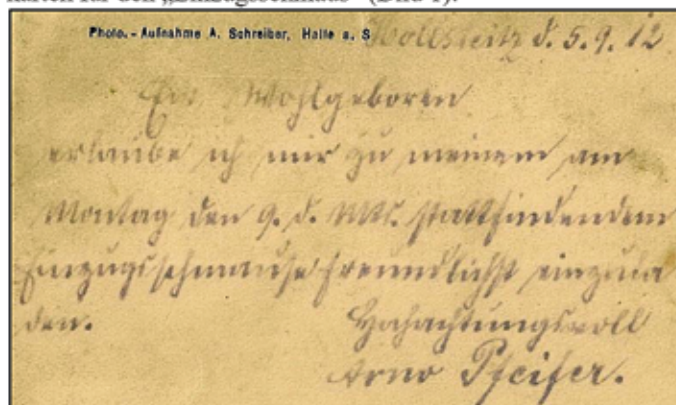 karten für den „Einzugsschmaus“ (Bild 1).
Photo.- Aufnahme A. Schreiber, Halle a. S
d. 5.9.12
Ew. Wohlgeboren
erlaube ich mir zu meinem am
Montag den 9. d. Mts. stattfindendem
Einzugsschmause freundlichst einzula
den. Hochachtungsvoll
Arno Pfeifer.